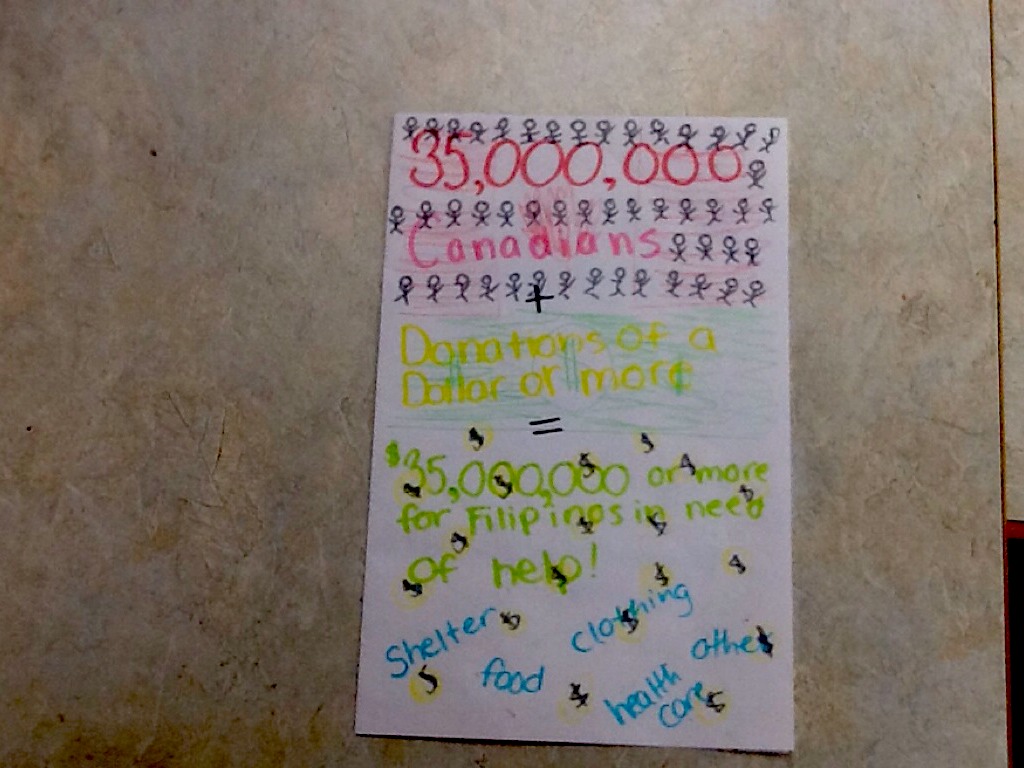 35,000,000
Canadians
+
Donations of a
Dollar or more
=
$35,000,000 or more
for Filipinos in need
of help!
Shelter clothing
food other
health
care